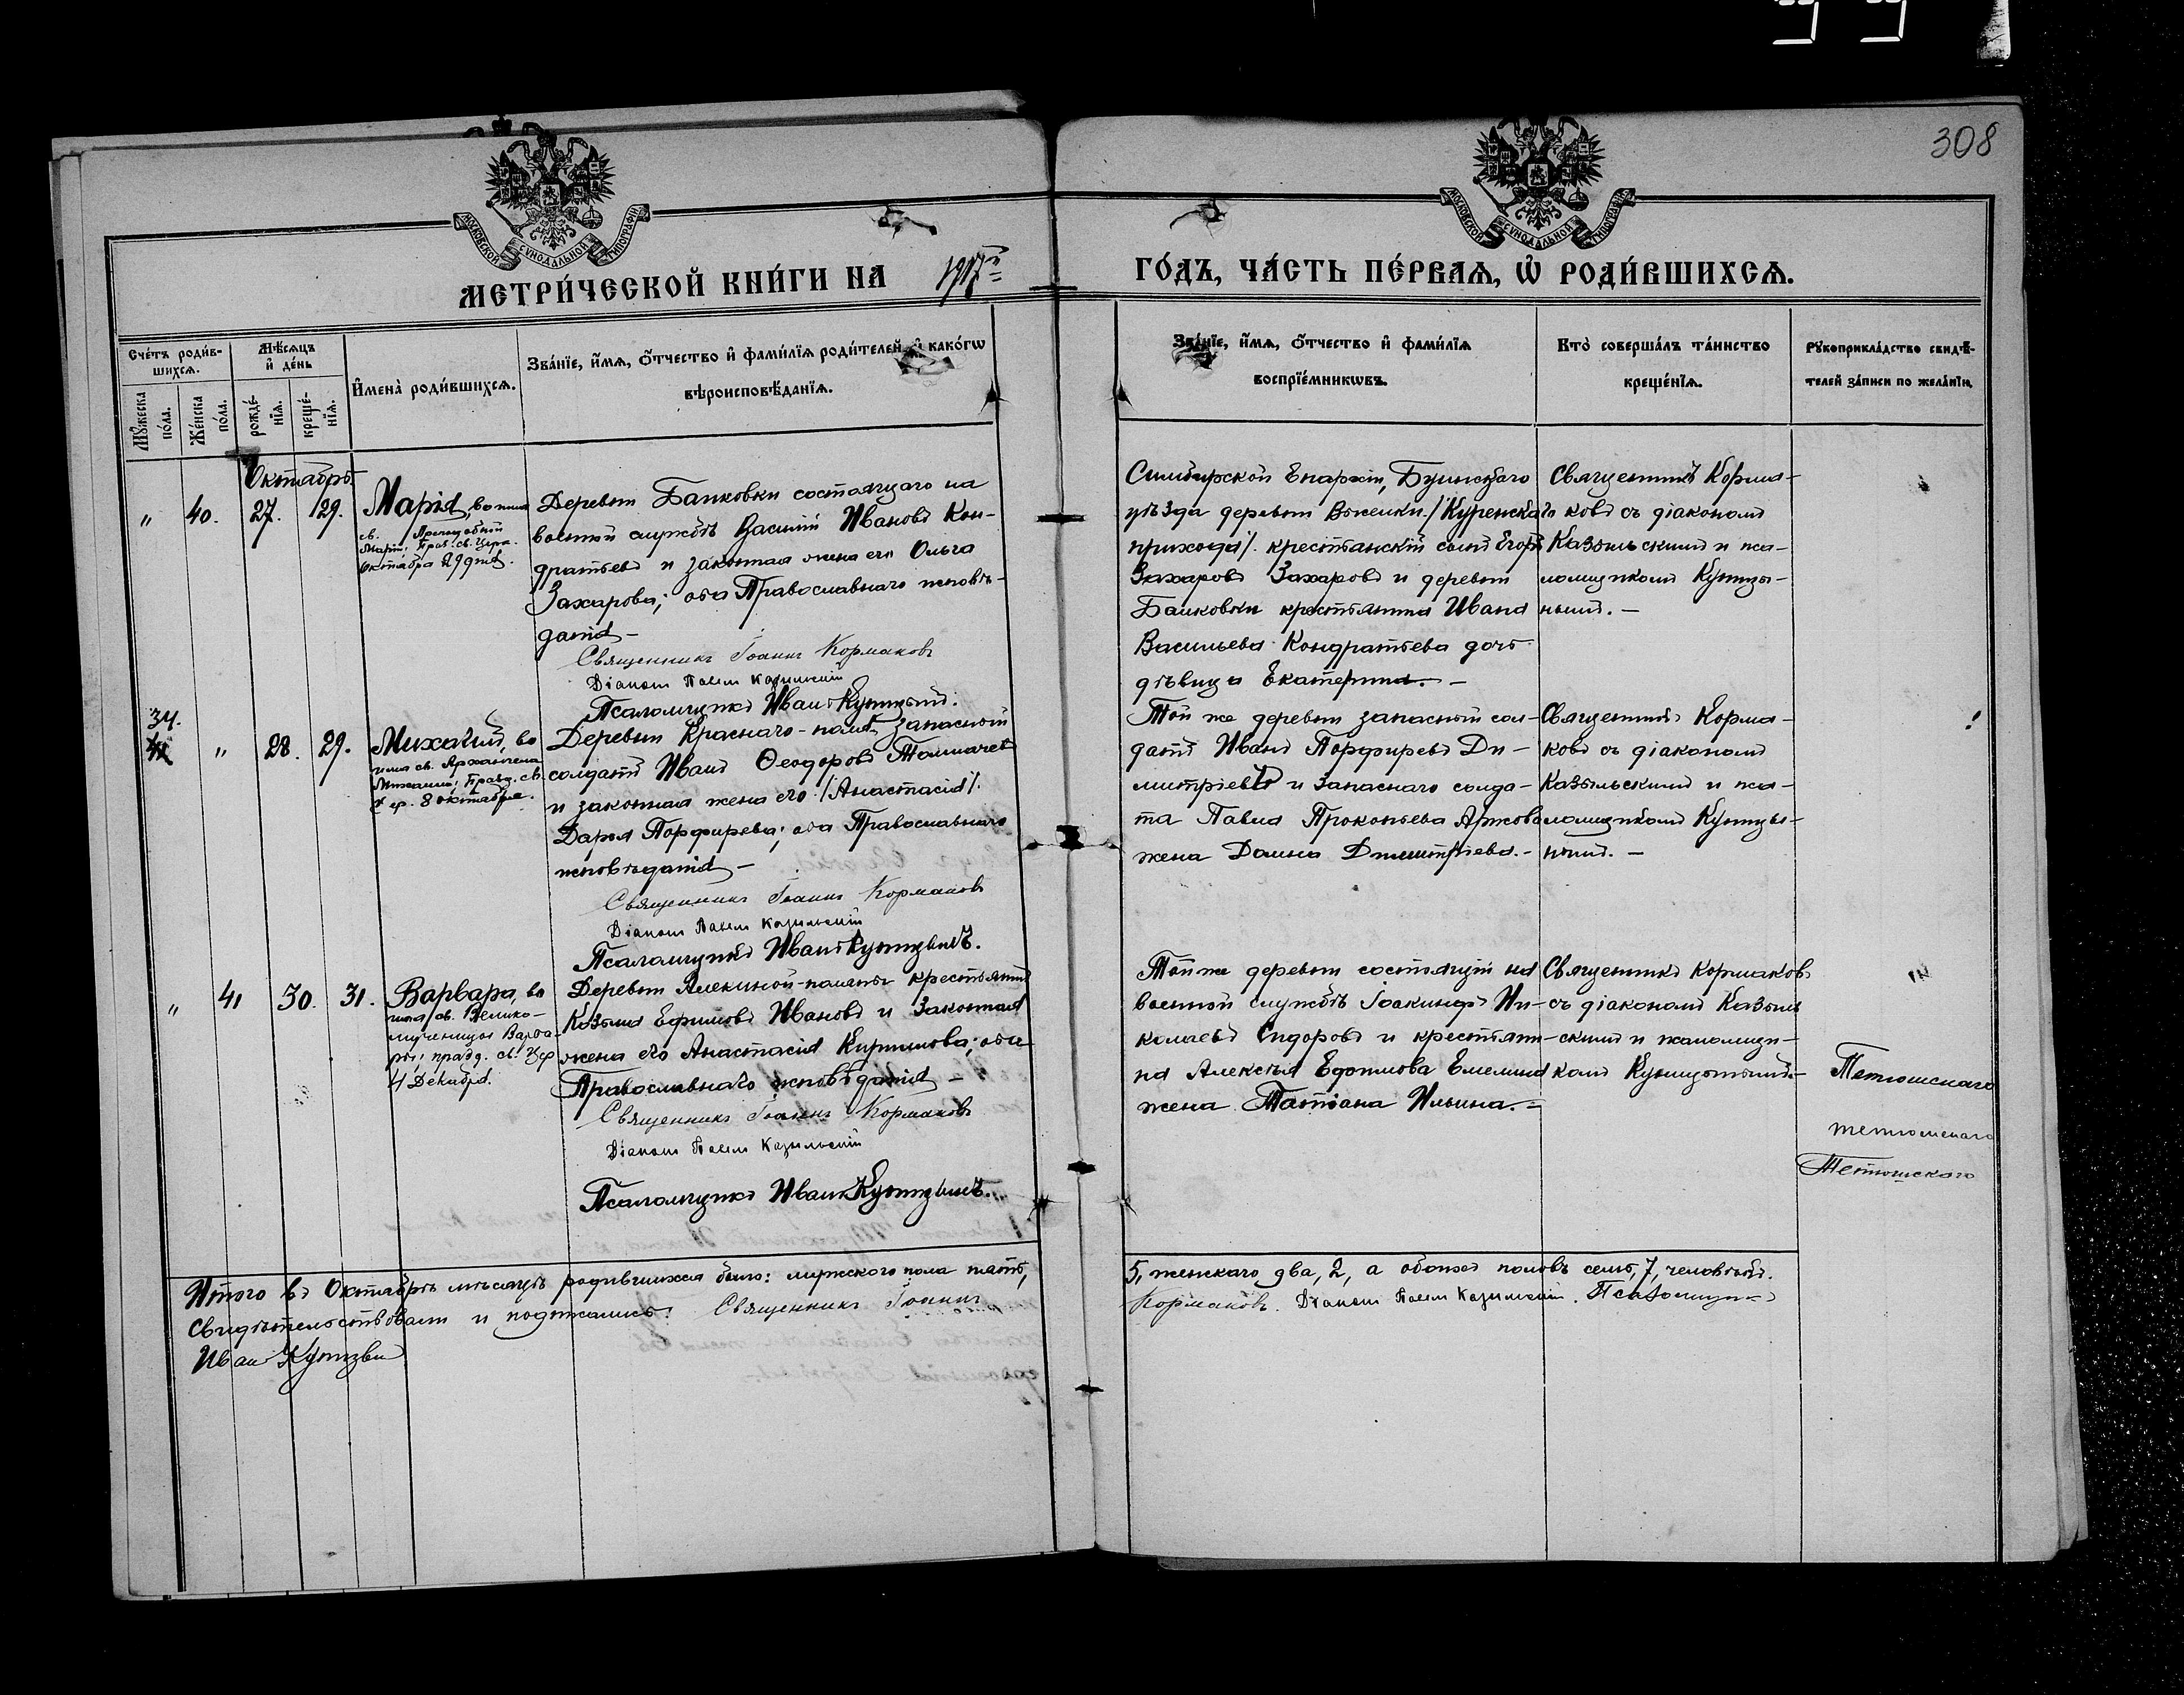 308
МОСКОВСКОЙ СѴНОДАЛЬНОЙ ТИПОГРАФІИ
МОСКОВСКОЙ СѴНОДАЛЬНОЙ ТИПОГРАФІИ
МЕТРИ́ЧЕСКОЙ КНИ́ГИ НА 1917й
ГО́ДЪ, ЧА́СТЬ ПЕ́РВАѦ, Ѡ҆ РОДИ́ВШИХСѦ.
Сче́тъ роди́в-
шихсѧ.
Мꙋ́жеска по́ла.
Же́нска по́ла.
Мѣ́сѧцъ и҆ де́нь
рожде́-нїѧ.
креще́-нїѧ.
И҆мена̀ роди́вшихсѧ.
Зва́нїе, и҆́мѧ, ѻ҆́тчество и҆ фами́лїѧ роди́телей, и҆ како́гѡ
вѣроисповѣ́данїѧ.
Зва́нїе, и҆́мѧ, ѻ҆́тчество и҆ фами́лїѧ
воспрїе́мникѡвъ.
Кто̀ соверша́лъ та́инство
креще́нїѧ.
Рꙋкоприкла́дство свидѣ́-
телей за́писи по жела́нїю.
Октябрь
" 40. 27. 29.
Марія, во имя
св. Преподобной
Маріи; Праз. св. Церк.
Октября 29 дня.
Деревни Банковки состоящаго на
военной службѣ Василій Ивановъ Кон-
дратьевъ и законная жена его Ольга
Захарова; оба Православнаго исповѣ-
данія —
Священникъ Іоаннъ Кормаковъ
Діаконъ Павелъ Казыльскій
Псаломщикъ Иванъ
Симбирской Епархіи, Буинскаго
уѣзда деревни /Куренскаго
прихода/. крестьянскій сынъ Егоръ
Захаровъ Захаровъ и деревни
Банковки крестьянина Ивана
Васильева Кондратьева дочь
дѣвица Екатерина. —
Священникъ Корма-
ковъ съ діакономъ
Казыльскимъ и пса-
ломщикомъ
34.
" 28. 29.
Михаилъ, во
имя св. Архангела
Михаила; Празд. св.
Цер. 8 октября.
Деревни Краснаго-поля запасный
солдатъ Иванъ Ѳеодоровъ Толмачевъ
и законная жена его /Анастасія/
Дарья Порфирьева; оба Православнаго
исповѣданія —
Священникъ Іоаннъ Кормаковъ
Діаконъ Павелъ Казыльскій
Псаломщикъ Иванъ
Той же деревни запасный сол-
датъ Иванъ Порфирьевъ Ди-
митріевъ и запаснаго солда-
та Павла Прокопьева
жена Домна Димитріева. —
Священникъ Корма-
ковъ съ діакономъ
Казыльскимъ и пса-
ломщикомъ
" 41 30. 31.
Варвара, во
имя св. Велико-
мученицы Варва-
ры; празд. св. Цер
4 Декабря.
Деревни Алекиной-поляны крестьянинъ
Козьма Ефимовъ Ивановъ и законная
жена его Анастасія Кириллова; оба
Православнаго исповѣданія —
Священникъ Іоаннъ Кормаковъ
Діаконъ Павелъ Казыльскій
Псаломщикъ Иванъ
Той же деревни состоящій на
военной службѣ Іоакинфъ Ни-
колаевъ Сидоровъ и крестьяни-
на Алексѣя Емелина
жена Татіана Ильина. —
Священникъ Кормаковъ
съ діакономъ Казыль
скимъ и псаломщи-
комъ
Тетюшскаго
тетюшскаго
Тетюшскаго
Итого въ Октябрѣ мѣсяцѣ родившихся было: мужского пола пять,
5, женскаго два, 2, а обоихъ половъ семь, 7, человѣкъ.
Свидѣтельствовали и подписались: Священникъ Іоаннъ
Кормаковъ. Діаконъ Павелъ Казыльскій. Псаломщикъ
Иванъ